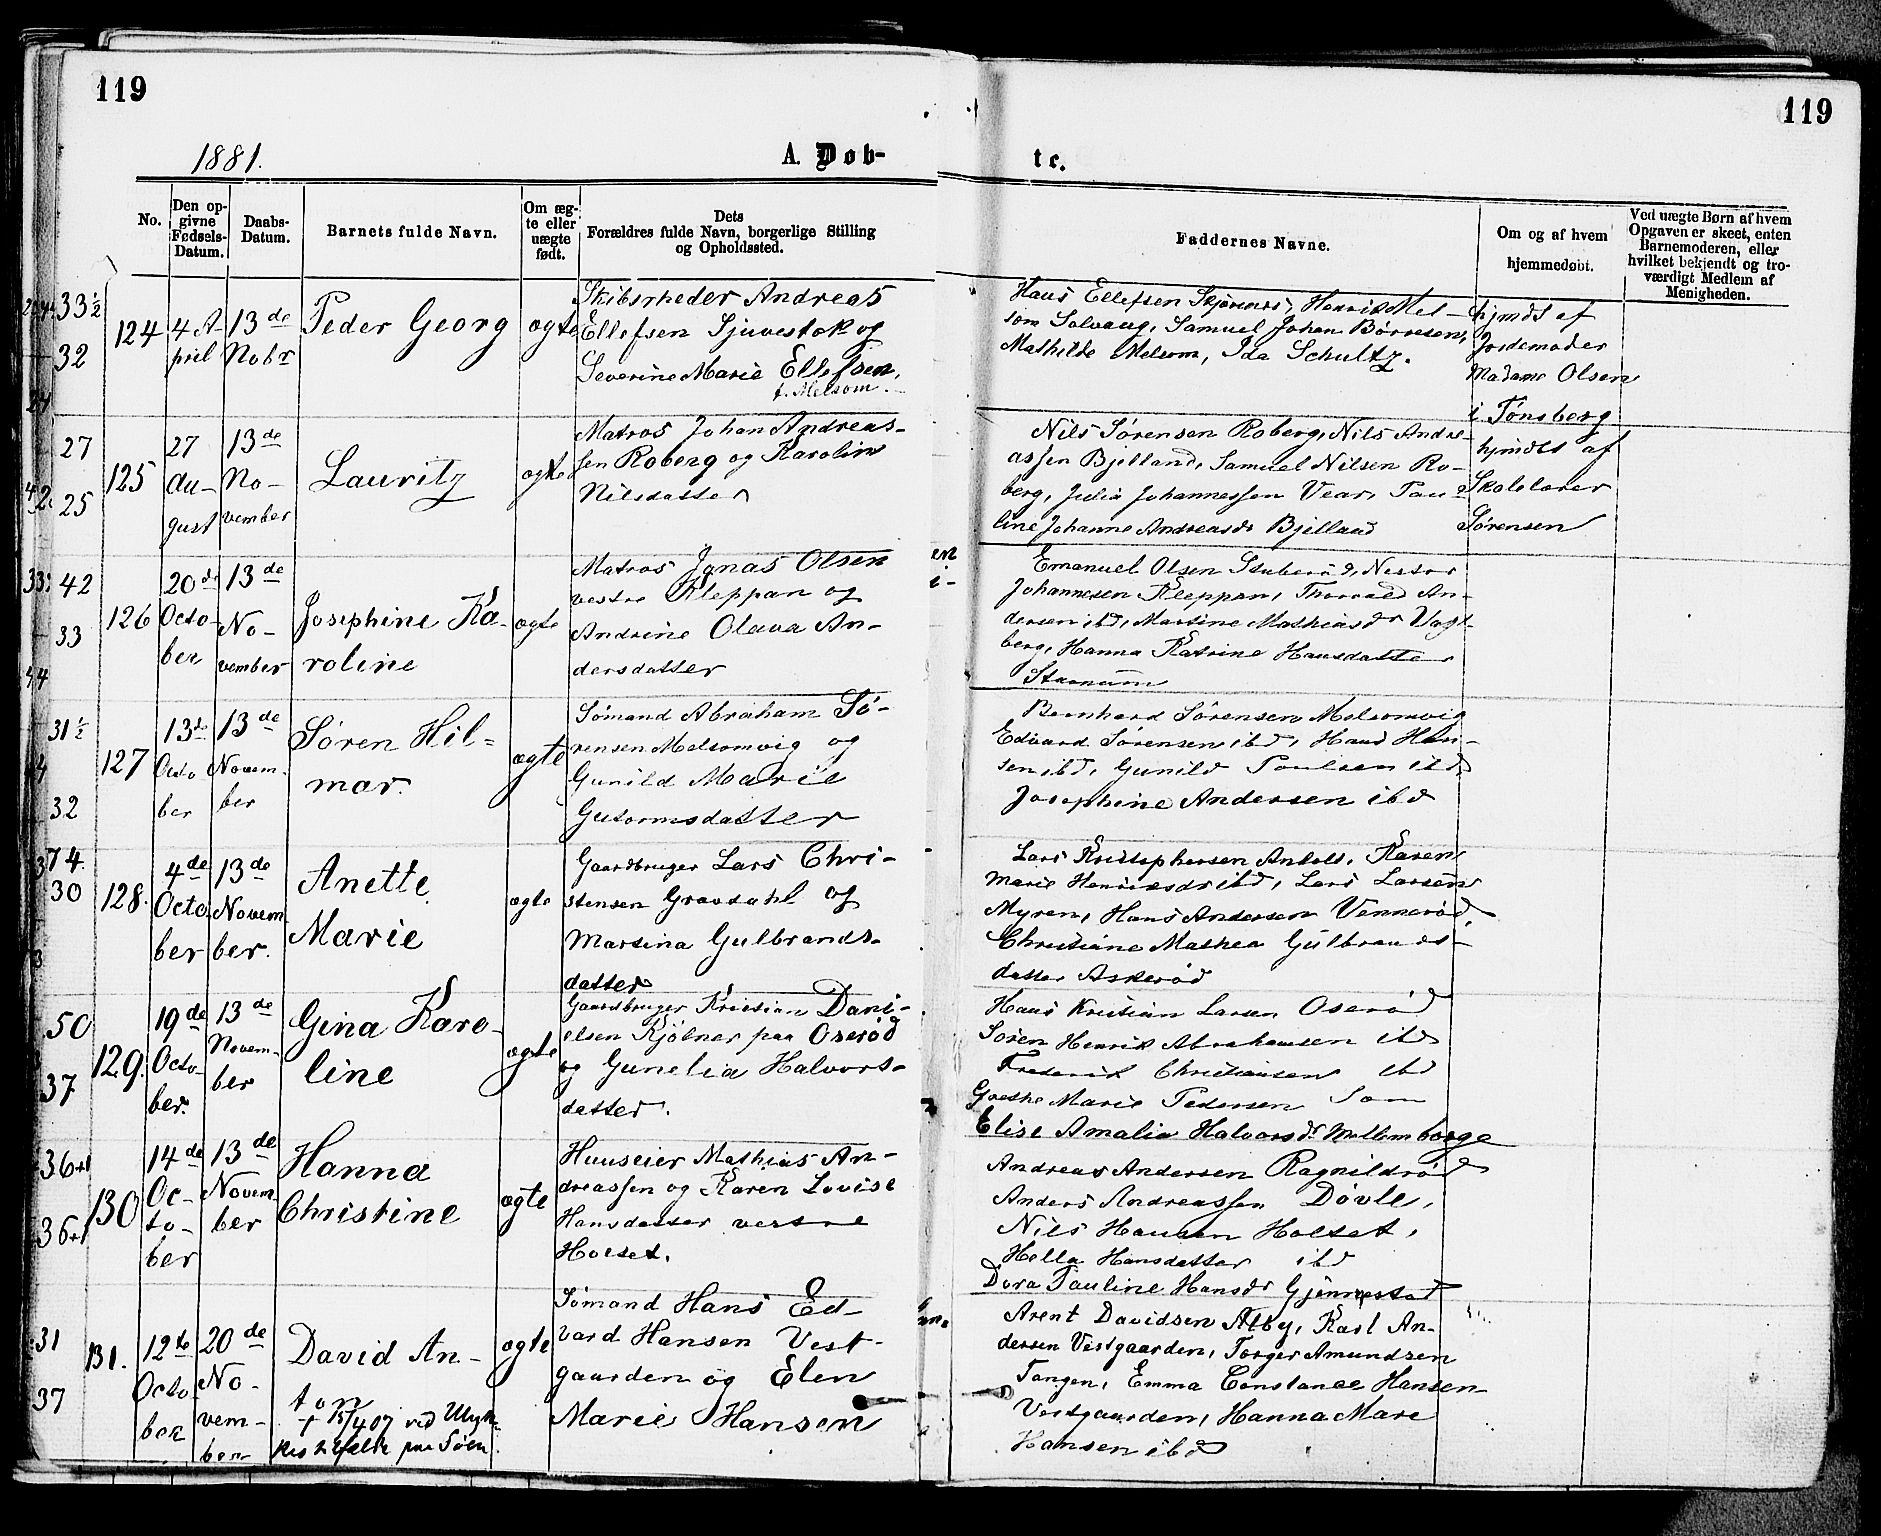 119
119
1881.
A. Døb-
te.
No.
Den op-
givne
Fødsels-
Datum.
Daabs-
Datum.
Barnets fulde Navn.
Om æg-
te eller
uægte
født.
Dets
Forældres fulde Navn, borgerlige Stilling
og Opholdssted.
Faddernes Navne.
Om og af hvem
hjemmedøbt.
Ved uægte Børn af hvem
Opgaven er skeet, enten
Barnemoderen, eller
hvilket bekjendt og tro-
værdigt Medlem af
Menigheden.
33½
32
124
4 A-
pril
13de
Nobr
Peder Georg
ægte
Skibsrheder Andreas
Ellefsen Sjuvestok og
Severine Marie Ellefsen,
f. Melsom.
Hans Ellefsen Skjønnes, Henrik Mel-
som Solvang, Samuel Johan Børresen,
Mathilde Melsom, Ida Schultz.
hjmdt af
Jordemoder
Madame Olsen
i Tønsberg
27
25
125
27
Au-
gust
13de
No-
vember
Lauritz
ægte
Matros Johan Andreas-
sen Roberg og Karoline
Nilsdatter
Nils Sørensen Roberg, Nils Andre-
assen Bjelland, Samuel Nilsen Ro-
berg, Julia Johannessen Vear, Pau-
line Johanne Andreasdr Bjelland
hjmdt af
Skolelærer
Sørensen
42
33
126
20de
Octo-
ber
13de
No-
vember
Josephine Ka-
roline
ægte
Matros Jonas Olsen
vestre Kleppan og
Andrine Olava An-
dersdatter
Emanuel Olsen Stuberød, Nestor
Johannesen Kleppan, Thorvald An-
dersen ibd, Martine Mathiasdr Vagt-
berg, Hanna Katrine Hansdatter
31½
32
127
13de
Octo
ber
13de
Novem-
ber
Søren Hil-
mar.
ægte
Sømand Abraham Sø-
rensen Melsomvig og
Gunild Marie
Gutormsdatter
Bernhard Sørensen Melsomvig
Edvard Sørensen ibd, Hans Han-
sen ibd, Gunild Poulsen ibd
Josephine Andersen ibd
74
30
128.
4de
Octo
ber
13de
Novem
ber.
Anette
Marie
ægte
Gaardbruger Lars Chri-
stensen Gravdahl og
Martina Gulbrands-
datter
Lars Kristophersen Anholt, Karen
Marie Henriksdr ibd, Lars Larsen
Myren, Hans Andersen Vennerød,
Christiane Mathea Gulbrands-
datter Askerød
50
37
129.
19de
Octo-
ber.
13de
Novem-
ber
Gina Karo-
line
ægte
Gaardbruger Kristian Dani-
elsen Kjølner paa Oserød
og Gunelia Halvors-
datter.
Hans Kristian Larsen Oserød
Søren Henrik Abrahamsen ibd
Frederik Christiansen ibd
Grethe Marie Pedersen Som
Elise Amalia Halvorsdr Mellemborge
36+1
36+1
130
14de
Oc-
to-
ber
13de
Novem
ber
Hanna
Christine
ægte
Huuseier Mathias An-
dreassen og Karen Lovise
Hansdatter vestre
Holtet.
Andreas Andersen Ragnildrød
Anders Andreassen Døvle,
Nils Hansen Holtet,
Hella Hansdatter ibd
Dora Pauline Hansdr Gjennestad
31
37
131.
12te
Octo
ber
20de
No-
vem-
ber
David An-
ton
+ 15/4 07 ved Ulyk-
kestilfælde paa Søen.
ægte
Sømand Hans Ed-
vard Hansen Vest-
gaarden og Elen
Marie Hansen
Arent Davidsen Alby, Karl An-
dersen Vestgaarden, Torger Amundsen
Tangen, Emma Constance Hansen
Vestgaarden, Hanna Mare
Hansen ibd